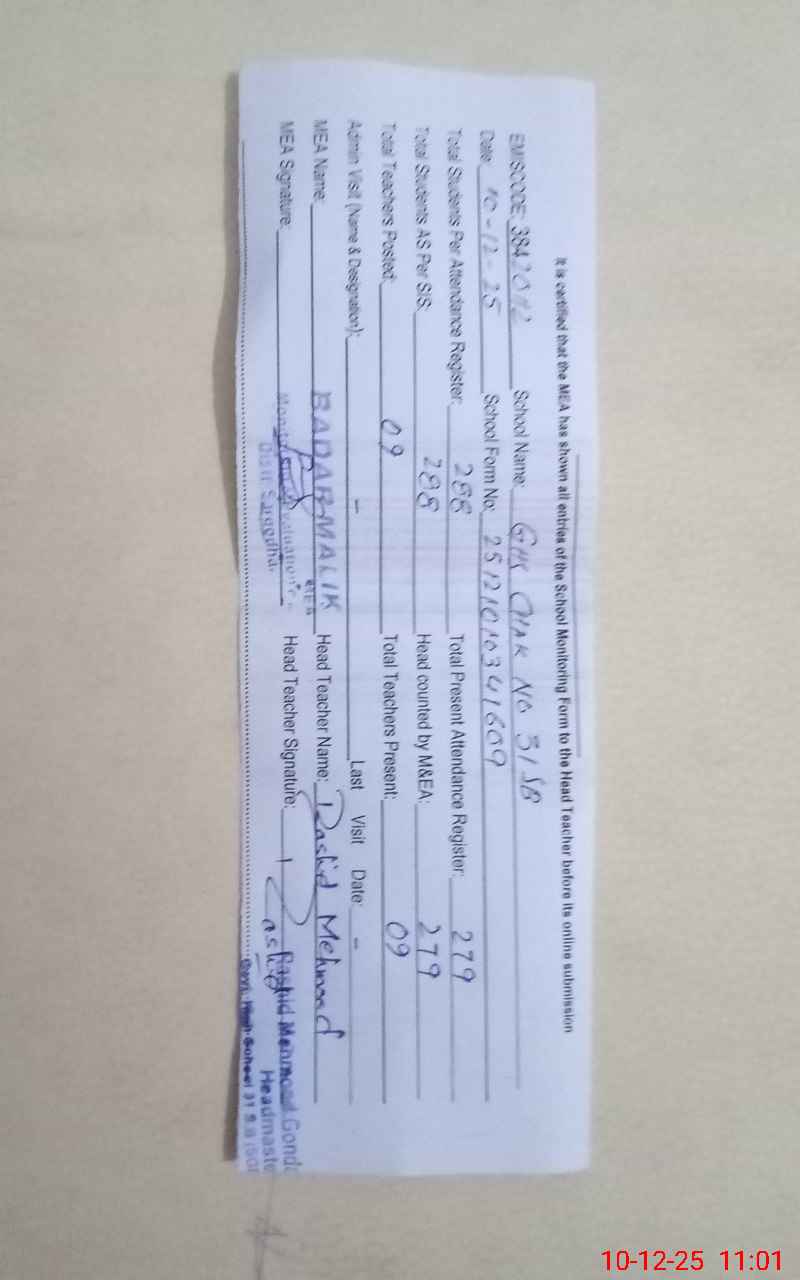 It is certified that the MEA has shown all entries of the School Monitoring Form to the Head Teacher before its online submission
EMISCODE: 3842012 School Name: GHS CHAK NO 31 SB
Date: 10-12-25 School Form No: 25121010341609
Total Students Per Attendance Register: 288 Total Present Attendance Register: 279
Total Students AS Per SIS: 288 Head counted by M&EA: 279
Total Teachers Posted: 09 Total Teachers Present: 09
Admin Visit (Name & Designation): - Last Visit Date: -
MEA Name: BADAR MALIK Head Teacher Name: Rashid Mehmood
MEA
MEA Signature: Head Teacher Signature: Rashid
Distt: Sargodha.
Rashid Mehmood
Headmaste
Govt. High School 31 S.B
10-12-25 11:01